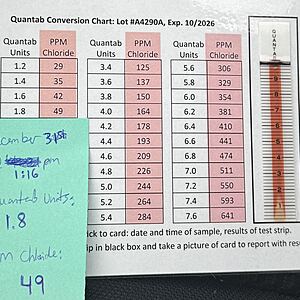 Quantab Conversion Chart: Lot #A4290A, Exp. 10/2026
Quantab Units PPM Chloride Quantab Units PPM Chloride Quantab Units PPM Chloride
1.2 29 3.4 125 5.6 306
1.4 35 3.6 137 5.8 329
1.6 42 3.8 150 6.0 354
1.8 49 4.0 164 6.2 381
4.2 178 6.4 410
4.4 193 6.6 441
4.6 209 6.8 474
4.8 226 7.0 511
5.0 244 7.2 550
5.2 264 7.4 593
5.4 284 7.6 641
ick to card: date and time of sample, results of test strip.
ip in black box and take a picture of card to report with res
cember 31st
pm
1:16
uantab Units:
1.8
m Chloride:
49
QUANTAB